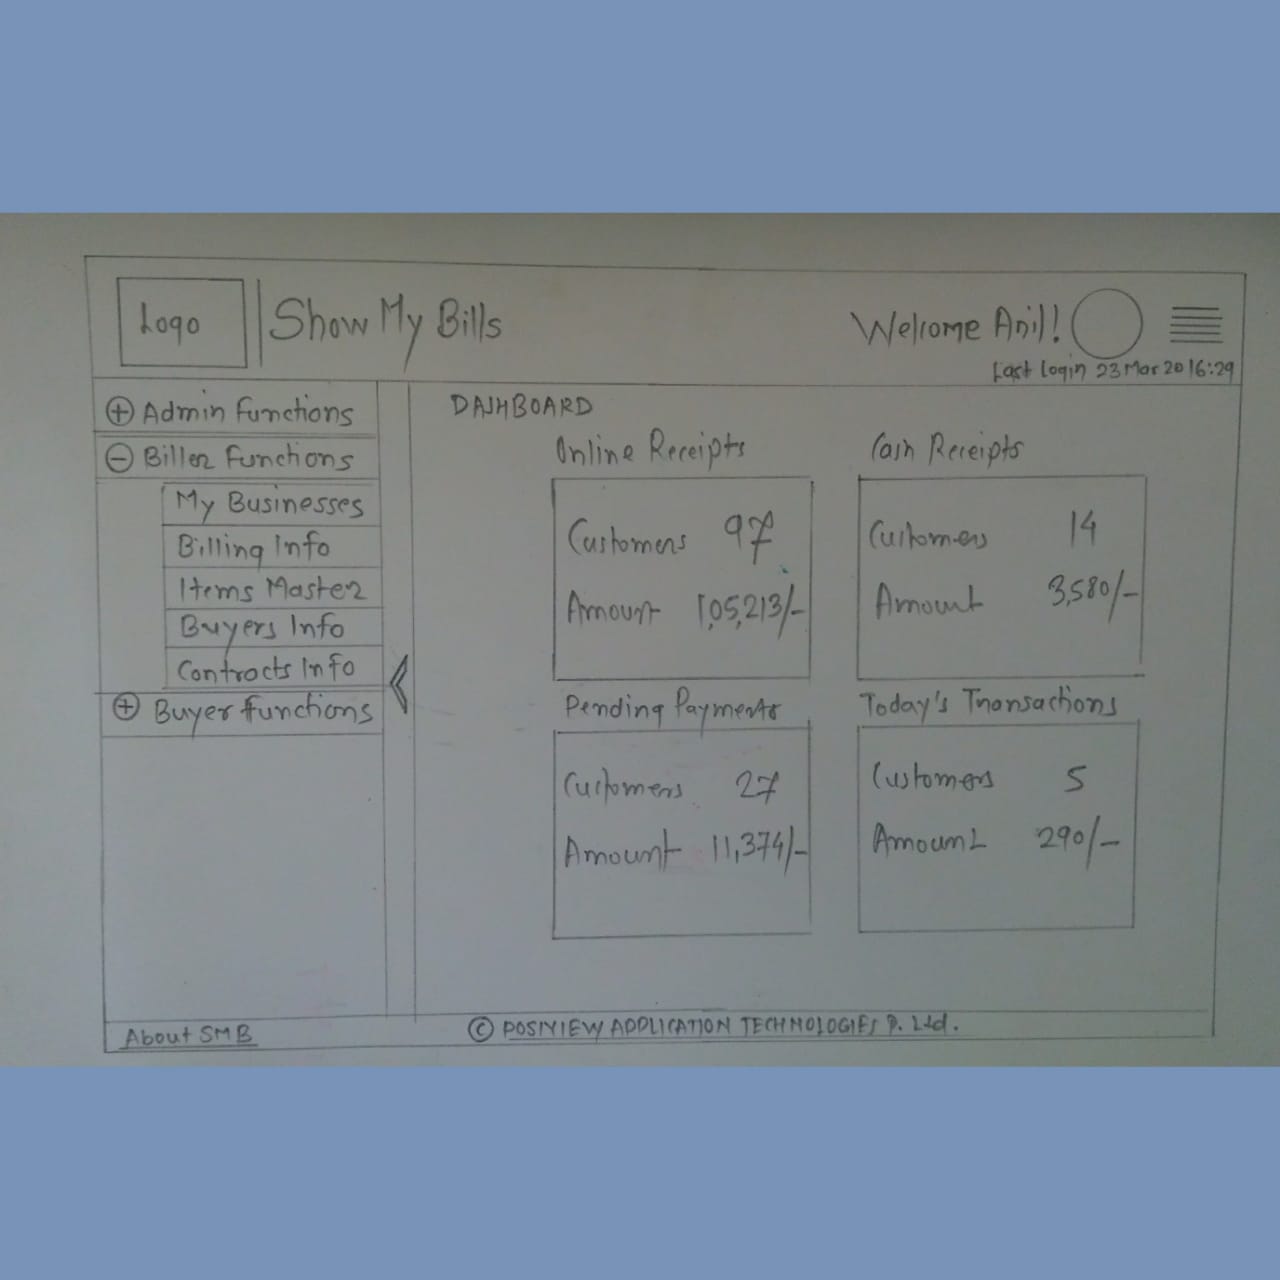 Logo
Show My Bills
Welcome Anil!
Last Login 23 Mar 20 16:29
Admin Functions
Biller Functions
My Businesses
Billing Info
Items Master
Buyers Info
Contracts Info
Buyer functions
DASHBOARD
Online Receipts
Customers 97
Amount 1,05,213/-
Cash Receipts
Customers 14
Amount 3,580/-
Pending Payments
Customers 27
Amount 11,374/-
Today's Transactions
Customers 5
Amount 290/-
About SMB
© POSIVIEW APPLICATION TECHNOLOGIES P. Ltd.